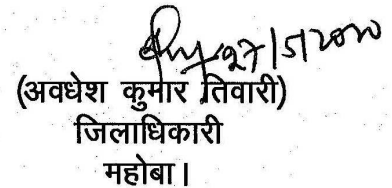 27/5/2020
(अवधेश कुमार तिवारी)
जिलाधिकारी
महोबा।